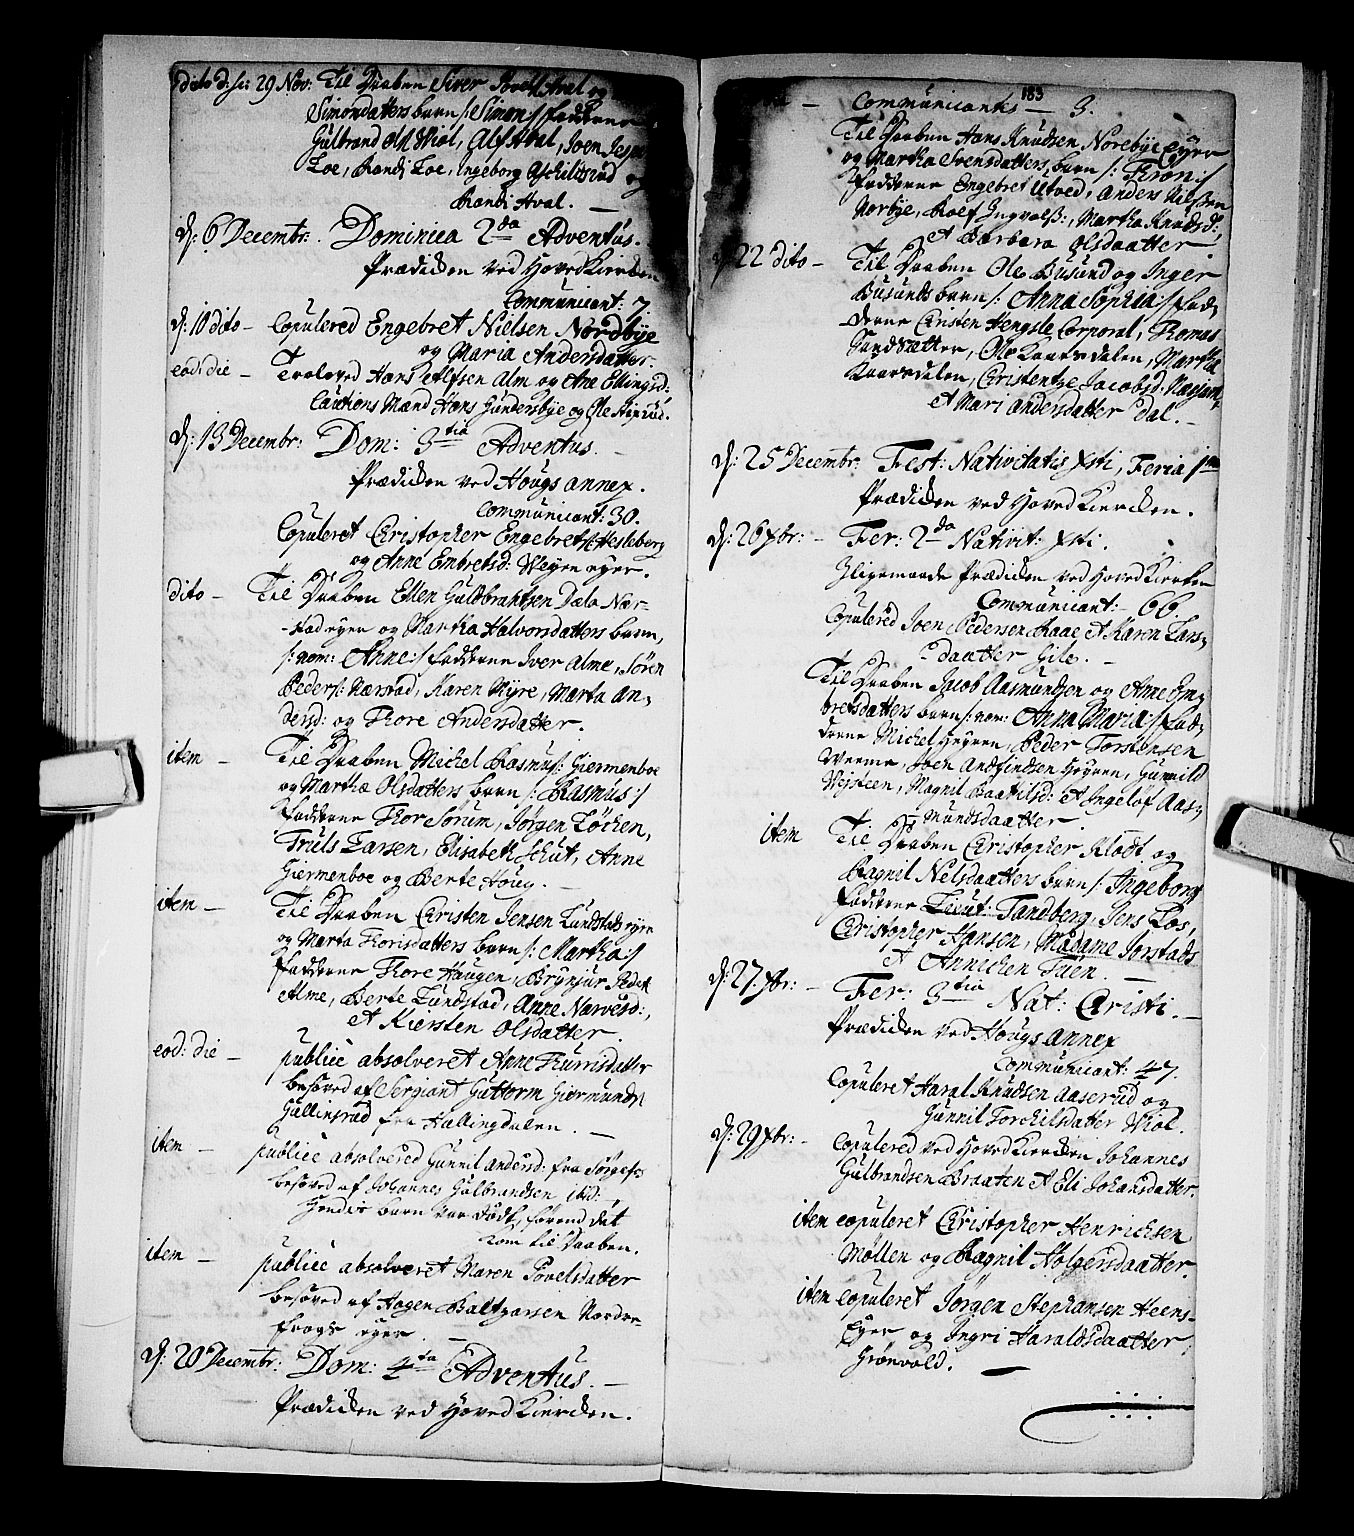 dito d: se: 29 Nov: Til Daaben Siver Povels Aval og
Simonsdatters barn /: Simon :/ fadderne
Gulbrand Viol, Alf Aval, Joen Jesp
Loe, Randi Loe, Ingeborg Eschildsrud og
Randi Aval. —
d: 6 Decembr: Dominica 2da Adventus.
Prædicken ved HovedKiercken
Communicant: 7.
d: 10 dito – Copulered Engebret Nielsen Nordbye
og Maria Andersdatter.
eod: die – Troloved Hans Alfsen Alm og Ane Ellingsd:
Cautions Mænd Hans Gundersbye og Ole Stiprud.
d: 13 Decembr: Dom: 3tia Adventus.
Prædicken ved Hougs annex.
Communicant: 30.
Copuleret Christopher Engebrets: Hesleberg
og Anne Embretsd: Vegne eyer.
dito – Til Daaben Ellen Guldbrantsen Dæla Nær-
stad eyer og Martha Halvorsdatters barn,
/: nom: Anne :/ fadderne Iver Alme, Sören
Peders: Nærstad, Karen Myre, Marta An,
dersd: og Thore Andersdatter.
item – Til Daaben Michel Rasmus: Giermenboe
og Marthæ Olsdatters barn /: Rasmus :/
fadderne Thor Sorum, Jörgen Löcken,
Truls Larsen, Elisabett Schut, Anne
Giermenboe og Berte Houg. —
item – Til Daaben Christen Jensen Lundstads eyer
og Marta Thorisdatters barn /: Martha :/
fadderne Thore Haugen, Brynjur Peder
Alme, Berte Lundstad, Anne Narvesd:,
et Kiersten Olsdatter.
eod: die – publicè absolveret Anne Thurrisdatter
besoved af Sergiant Guttorm Giermunds:
Gullinsrud fra Hallingdalen. —
item – publicè absolvered Gunnil Andersd: fra Sörgef:
besoved af Johannes Gulbrandsen ibid:,
hendis barn var dödt, forend det
kom til Daaben.
item – publicè absolveret Maren Povelsdatter
besoved af Aagen Baltzarsen Nordre-
frogs eyer. —
d: 20 Decembr: Dom: 4ta Adventus. —
Prædicken ved HovedKiercken.
183
Communicantes — 3.
Til Daaben Hans Knudsen Norebye eyer
og Martha Svensdatters barn /: Thron :/
fadderne Engebret Utved, Anders Nilssen
Norbye, Rolf Ingvalss:, Martha Knudsd:
et Barbara Olsdaatter
d: 22 dito – Til Daaben Ole Busund og Inger
Busunds barn /: Anna Sophia :/ fad,
derne Christen Hengsle Corporal, Thomas
Sandsætter, Ole Kaarsdalen, Martha
Kaarsdalen, Christentze Jacobsd: Nagum,
et Mari Andersdatter Dal. –
d: 25 Decembr: Fest: Nativitatis Xsti, Feria 1ma
Prædicken ved HovedKiercken.
d: 26 Xbr: – Fer: 2da Nativit: Xsti.
Ligemaade Prædicken ved HovedKierken
Communicant: – 66
Copulered Joen Pedersen Raae et Karen Lars,
daatter Gile. –
Til Daaben Jacob Aasmundsen og Anne Em,
bretsdatters barn /: nom: Anna Maria :/ fad,
derne Michel Heyeren, Peder Torstensen
Verme, Joen Andfindsen Heyeren, Gunnild
Vejsteen, Magnil Baattilsd: et Ingelof Aas,
mundsdaatter.
item Til Daaben Christopher Klodt og
Ragnil Nelsdaatters barn /: Ingeborg
fadderne Lieut: Tandberg, Jens Loe,
Christopher Hansen, Madame Sorstads
et Annichen Tuen. —
d: 27 Xbr: – Fer: 3tia Nat: Christi. –
Prædicken ved Hougs Annex
Communicant: 47.
Copuleret Haral Knudsen Aaserud og
Gunnil Torchilsdatter Viol.
d: 29 Xbr: – Copulered ved HovedKiercken Johannes
Gulbrandsen Braaten et Eli Johansdatter.
item copuleret Christopher Henrichsen
Möllen og Ragnil Holgersdaatter.
item copuleret Jörgen Stephansen Heens-
Eyer og Ingri Haraldsdaatter
Grönvold. —